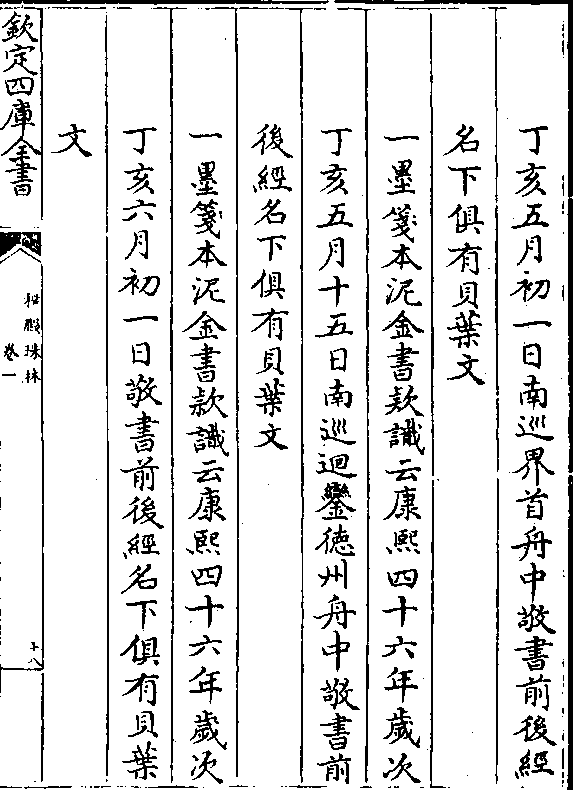 丁亥五月初一日南巡界首舟中敬書前後經
名下俱有貝葉文
一墨箋本泥金書款識云康熙四十六年歲次
丁亥五月十五日南巡迴鑾德州舟中敬書前
後經名下俱有貝葉文
一墨箋本泥金書款識云康熙四十六年歲次
丁亥六月初一日敬書前後經名下俱有貝葉
文
欽定四庫全書
秘殿珠林
卷一
十八